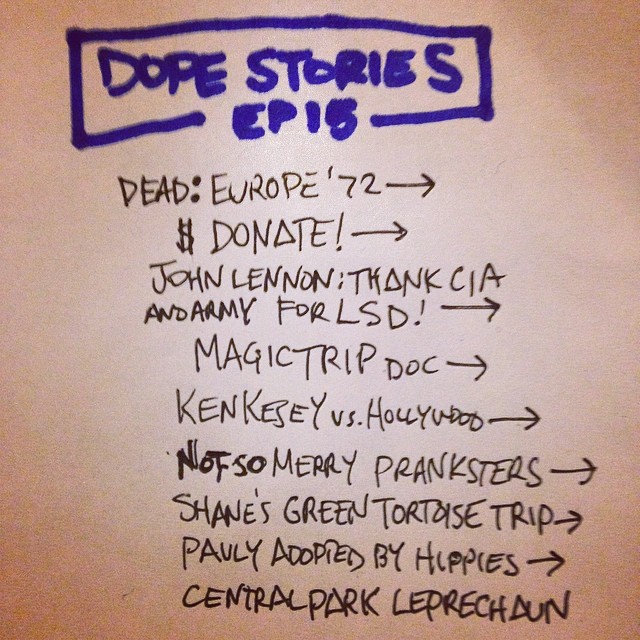 DOPE STORIES
EP 15
DEAD: EUROPE '72 →
$ DONATE! →
JOHN LENNON: THANK CIA
AND ARMY FOR LSD! →
MAGIC TRIP DOC →
KEN KESEY vs. HOLLYWOOD →
NOT SO MERRY PRANKSTERS →
SHANE'S GREEN TORTOISE TRIP →
PAULY ADOPTED BY HIPPIES →
CENTRAL PARK LEPRECHAUN